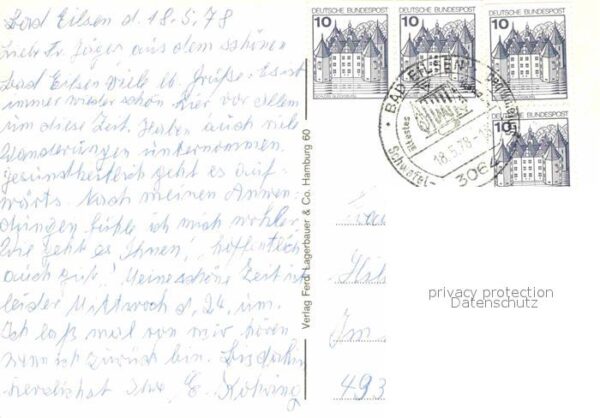 Bad Eilsen d. 18.5.78
Liebe Fr. Jäger, aus dem schönen
Bad Eilsen viele lb. Grüße. Es ist
immer wieder schön hier vor allem
um diese Zeit. Haben auch viele
Wanderungen unternommen.
Gesundheitlich geht es auf-
wärts. Nach meinen Anwen-
dungen fühle ich mich wohler.
Wie geht es Ihnen? hoffentlich
auch gut! Meine schöne Zeit ist
leider Mittwoch d. 24. um.
Ich laß mal von mir hören
wenn ich zurück bin. Bis dahin
herzlichst Ihre E.
Verlag Ferd. Lagerbauer & Co. Hamburg 60
10 DEUTSCHE BUNDESPOST
10 DEUTSCHE BUNDESPOST
10 DEUTSCHE BUNDESPOST
10 DEUTSCHE BUNDESPOST
BAD EILSEN
18.5.78
3064
Schwefel-
Im
493
privacy protection
Datenschutz